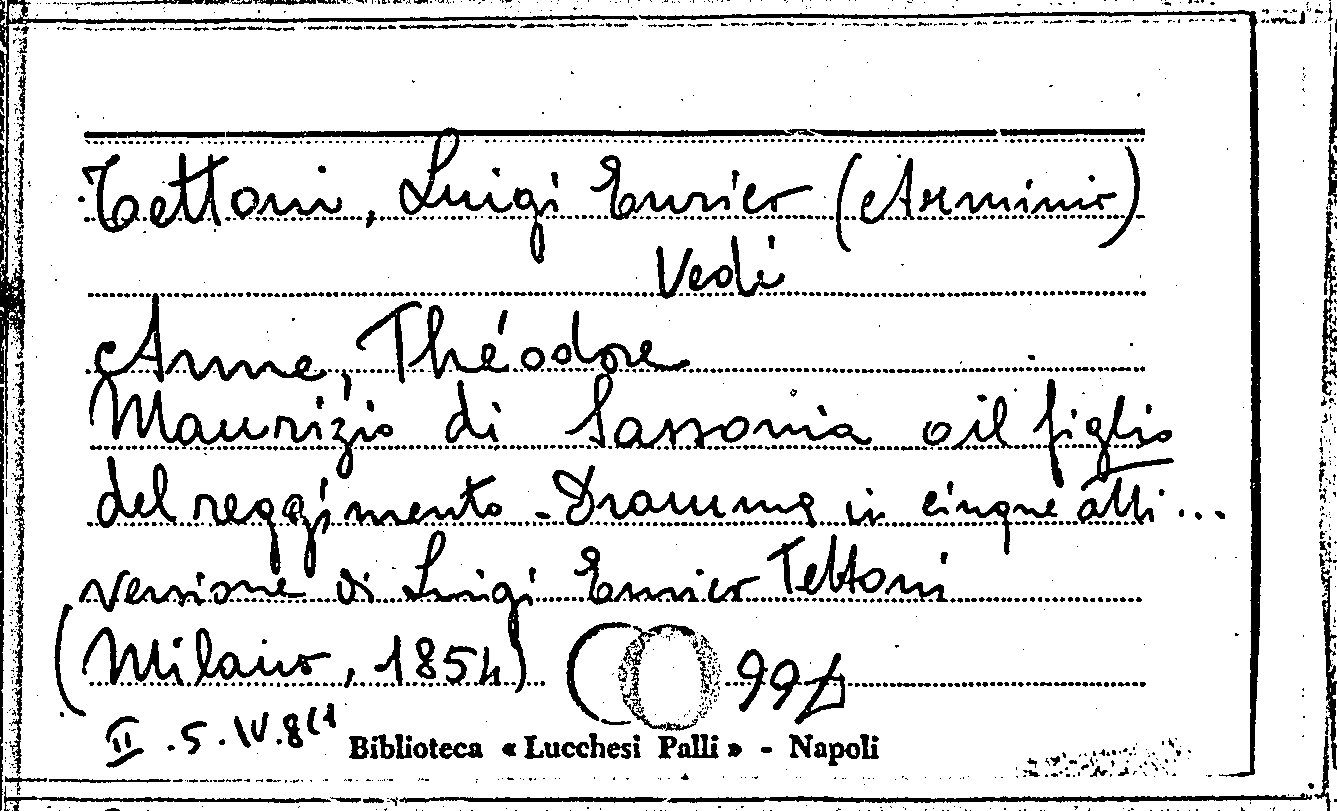 Tettoni, Luigi Enrico (Arminio)
Vedi
Anne, Théodore
Maurizio di Sassonia o il figlio
del reggimento - Dramma in cinque atti...
versione di Luigi Enrico Tettoni
(Milano, 1854)
II.5.IV.8(1
Biblioteca « Lucchesi Palli » - Napoli